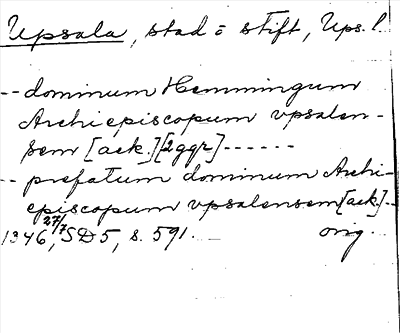 Upsala, stad o stift, Ups. l.
-- dominum Hemmingum
Archiepiscopum vpsalen-
sem [ack.] [2 ggr] ------
-- prefatum dominum Archi-
episcopum vpsalensem [ack] --
1346 27/7, SD 5, s. 591. orig.